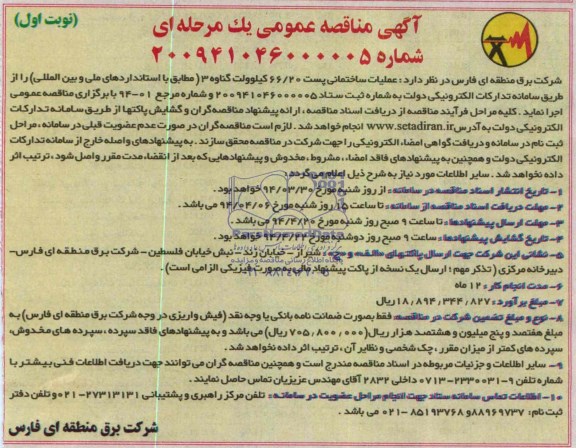 (نوبت اول)
آگهی مناقصه عمومی یك مرحله ای
شماره ۲۰۰۹۴۱۰۴۶۰۰۰۰۰۰۵
شرکت برق منطقه ای فارس در نظر دارد : عملیات ساختمانی پست ۶۶/۲۰ کیلوولت گناوه ۳ ( مطابق با استانداردهای ملی و بین المللی) را از
طریق سامانه تدارکات الکترونیکی دولت به شماره ثبت ستاد ۲۰۰۹۴۱۰۴۶۰۰۰۰۰۰۵ و شماره مرجع ۰۱-۹۴ با برگزاری مناقصه عمومی
اجرا نماید . کلیه مراحل فرآیند مناقصه از دریافت اسناد مناقصه ، ارائه پیشنهاد مناقصه گران و گشایش پاکتها از طریق سامانه تدارکات
الکترونیکی دولت به آدرس www.setadiran.ir انجام خواهد شد . لازم است مناقصه گران در صورت عدم عضویت قبلی در سامانه ، مراحل
ثبت نام در سامانه و دریافت گواهی امضاء الکترونیکی را جهت شرکت در مناقصه محقق سازند . به پیشنهادهای واصله خارج از سامانه تدارکات
الکترونیکی دولت و همچنین به پیشنهادهای فاقد امضاء ، مشروط ، مخدوش و پیشنهادهایی که بعد از انقضاء مدت مقرر واصل شود ، ترتیب اثر
داده نخواهد شد . سایر اطلاعات مورد نیاز به شرح ذیل اعلام می گردد :
۱- تاریخ انتشار اسناد مناقصه در سامانه : از روز شنبه مورخ ۹۴/۰۳/۳۰ خواهد بود.
۲- مهلت دریافت اسناد مناقصه از سامانه : تا ساعت ۱۵ روز شنبه مورخ ۹۴/۰۴/۰۶ می باشد .
۳- مهلت ارسال پیشنهادها : تا ساعت ۹ صبح روز شنبه مورخ ۹۴/۴/۲۰ می باشد .
۴- تاریخ گشایش پیشنهادها : ساعت ۹ صبح روز دوشنبه مورخ ۹۴/۴/۲۲ خواهد بود.
۵- نشانی این شرکت جهت ارسال پاکتهای مناقصه و وجه : شیراز - خیابان زند - نبش خیابان فلسطین - شرکت برق منطقه ای فارس-
دبیرخانه مرکزی ( تذکر مهم : ارسال یک نسخه از پاکت پیشنهاد مالی به صورت فیزیکی الزامی است) .
۶- مدت انجام کار : ۱۲ ماه
۷- مبلغ برآورد : ۱۸,۸۹۴,۳۴۴,۸۲۷ ریال
۸- نوع و مبلغ تضمین شرکت در مناقصه : فقط بصورت ضمانت نامه بانکی یا وجه نقد (فیش واریزی در وجه شرکت برق منطقه ای فارس) به
مبلغ هفتصد و پنج میلیون و هشتصد هزار ریال (۷۰۵,۸۰۰,۰۰۰ ریال) می باشد و به پیشنهادهای فاقد سپرده ، سپرده های مخدوش ،
سپرده های کمتر از میزان مقرر ، چک شخصی و نظایر آن ، ترتیب اثر داده نخواهد شد.
۹- سایر اطلاعات و جزئیات مربوطه در اسناد مناقصه مندرج است و همچنین مناقصه گران می توانند جهت دریافت اطلاعات فنی بیشتر با
شماره تلفن ۹-۲۳۳۰۰۳۱-۰۷۱۳ داخلی ۲۸۳۲ آقای مهندس عزیزیان تماس حاصل نمایند .
۱۰- اطلاعات تماس سامانه ستاد جهت انجام مراحل عضویت در سامانه : تلفن مرکز راهبری و پشتیبانی ۲۷۳۱۳۱۳۱-۰۲۱ و تلفن دفتر
ثبت نام ۸۸۹۶۹۷۳۷ و ۸۵۱۹۳۷۶۸-۰۲۱ می باشد .
شرکت برق منطقه ای فارس